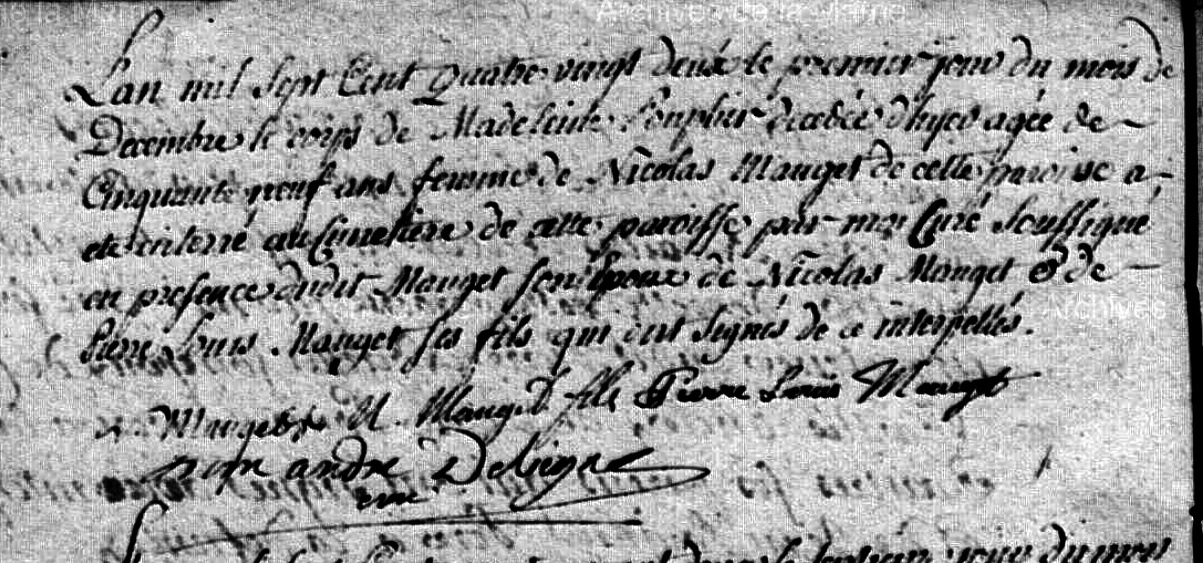 Archives de la Marne
Lan mil Sept Cent Quatre vingt deux le premier jour du mois de
Decembre le corps de Madeleine décédée d'hyer agée de
Cinquante neuf ans femme de Nicolas Mauget de cette paroisse a
eté interré au Cimetiere de cette paroisse par moi Curé Soussigné
en presence dudit Mauget son Epoux de Nicolas Mauget & de
Pierre Louis Mauget ses fils qui ont Signés de ce interpellés.
Mauget N. Mauget fils Pierre Louis Mauget
andre
du mois